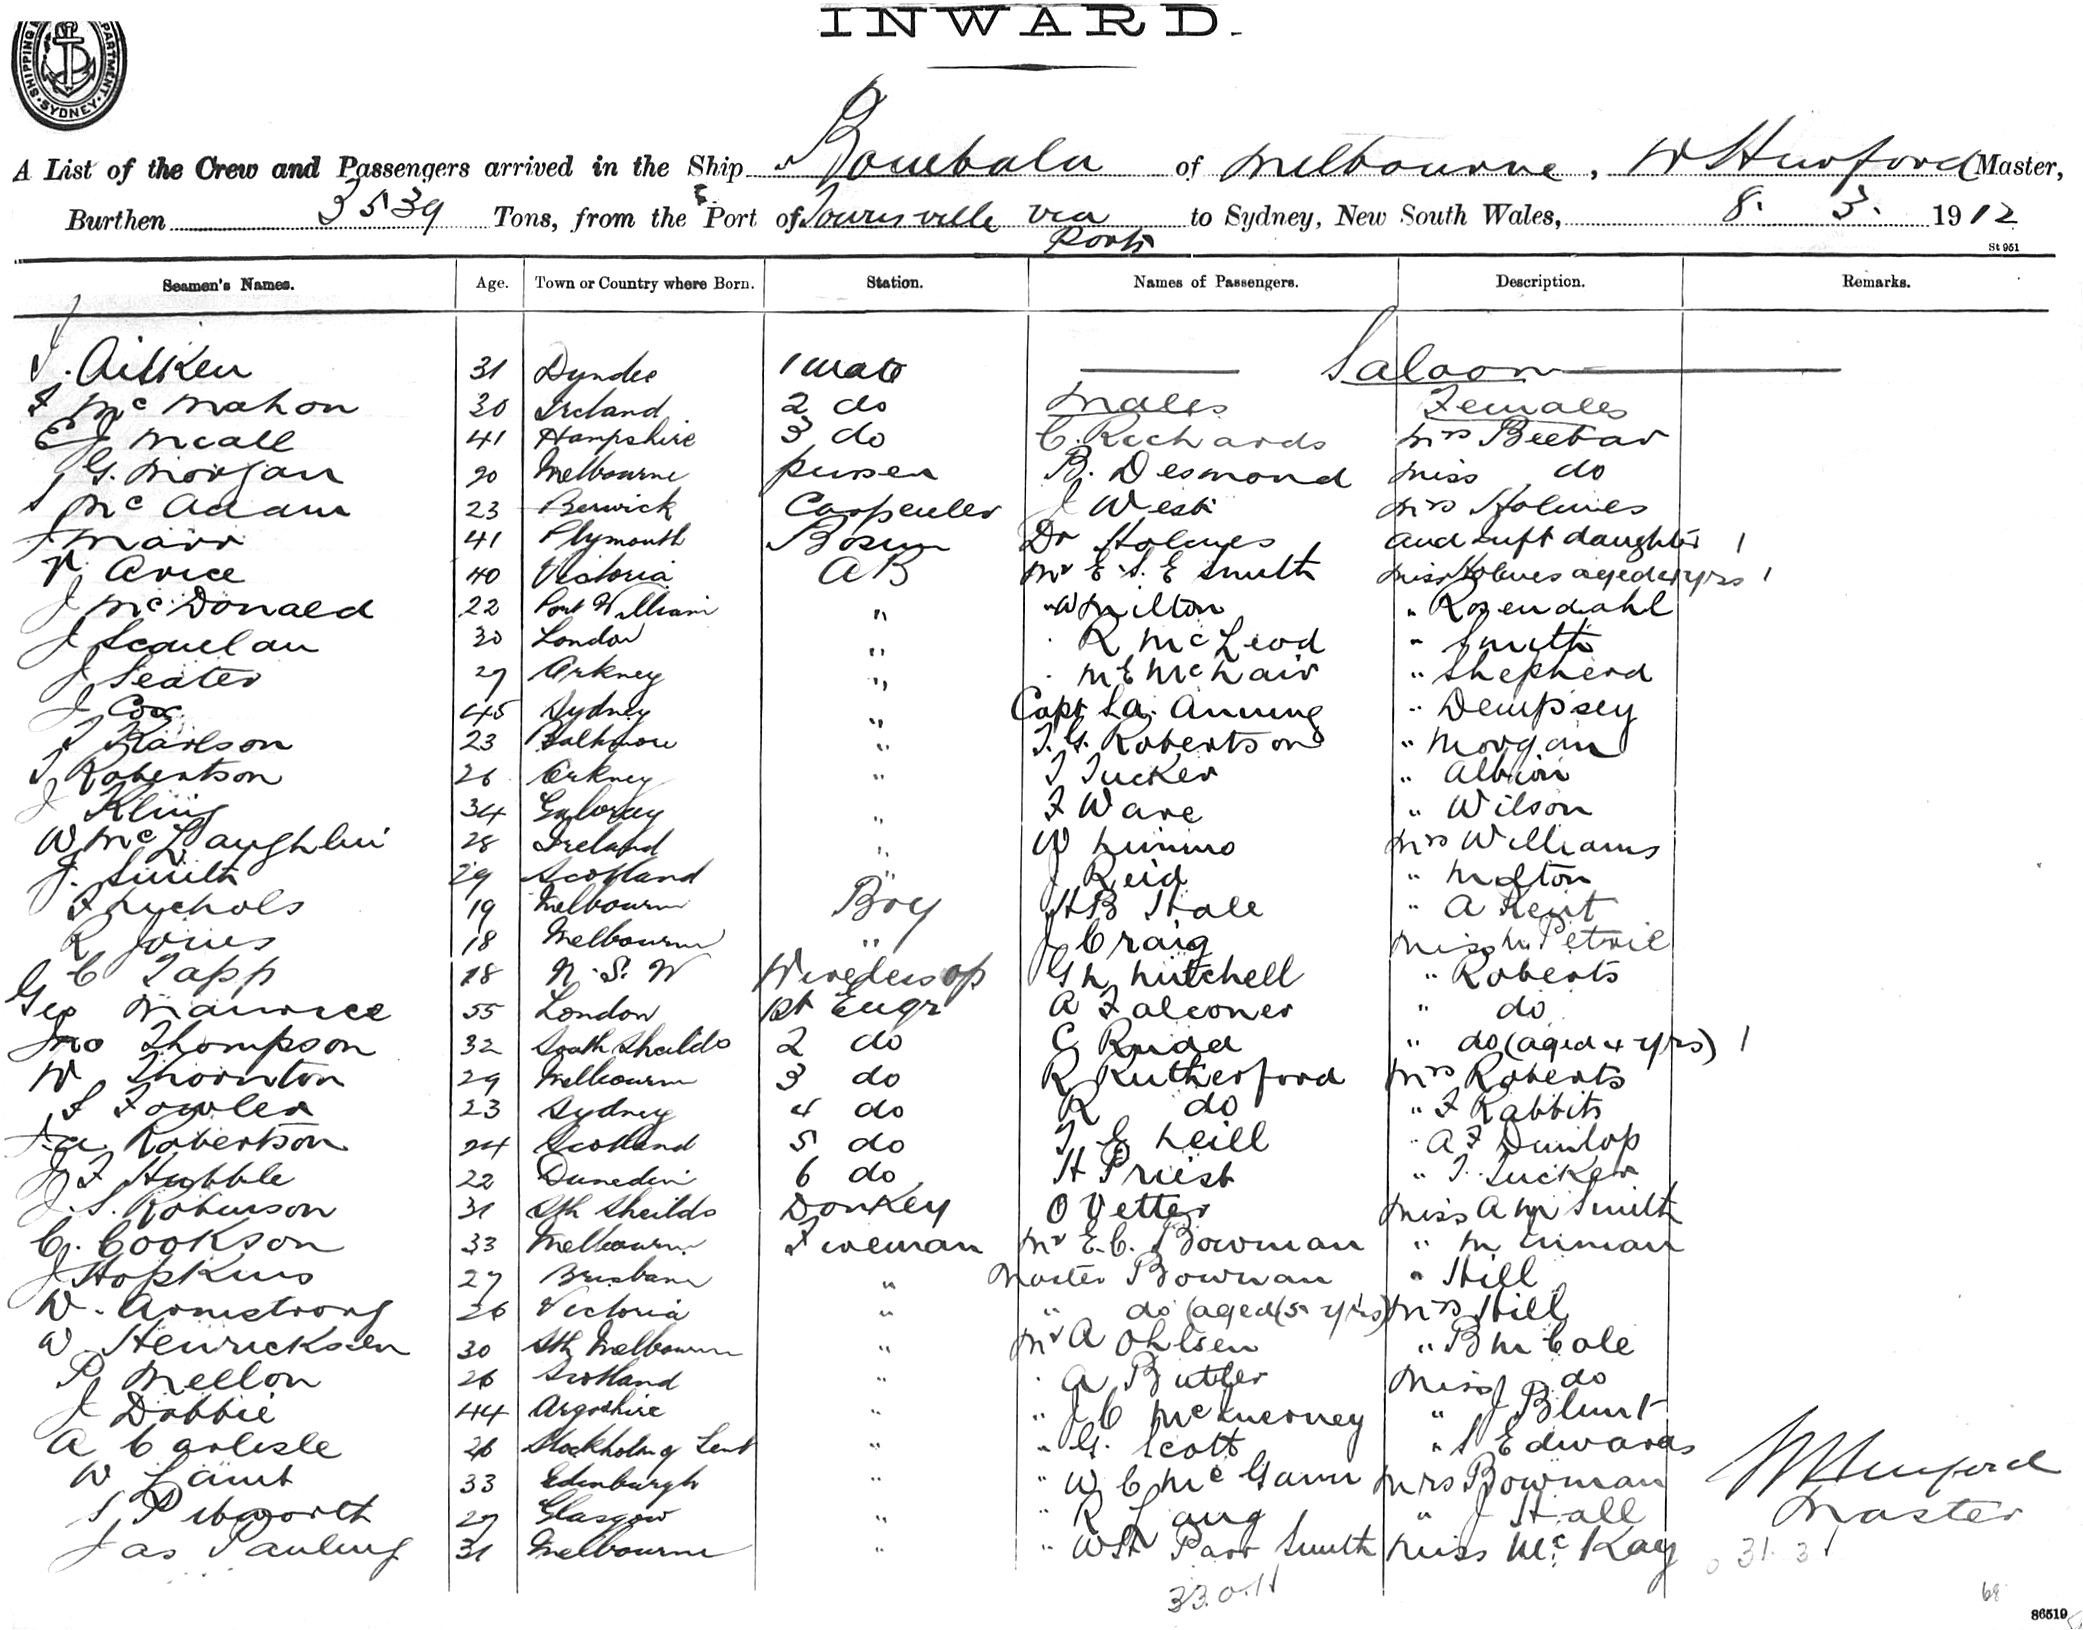 INWARD.
SHIPPING DEPARTMENT SYDNEY
A List of the Crew and Passengers arrived in the Ship Bombala of Melbourne, W Hurford Master,
Burthen 3539 Tons, from the Port of Townsville via Ports to Sydney, New South Wales, 8. 3. 1912
St 951
Seamen's Names. Age. Town or Country where Born. Station. Names of Passengers. Description. Remarks.
J. Aitken 31 Dundee 1 mate Saloon
F McMahon 30 Ireland 2 do Males Females
E J Mcall 41 Hampshire 3 do C. Richards Mrs Beebar
G. Morgan 20 Melbourne purser B. Desmond Miss do
S McAdam 23 Berwick Carpenter J West Mrs Holmes
J Marr 41 Plymouth Bosun Dr Holmes and inft daughter 1
Avice 40 Victoria AB Mr E. S. E Smith Miss Holmes aged 4 yrs 1
J McDonald 22 Port William " " W Milton " Rosendahl
J Scanlan 30 London " R McLeod " Smith
J Seater 27 Orkney " M E McNair " Shepherd
J Cox 45 Sydney " Capt S A. Anning " Dempsey
T Karlson 23 Baltimore " T. G. Robertson " Morgan
J Robertson 26 Orkney " T Tucker " Albion
J Kling 34 Galway " F Ware " Wilson
W McLaughlin 28 Ireland " W Nimmo Mrs Williams
J. Smith 29 Scotland " J Reid " Melton
F Nychols 19 Melbourne Boy H B Hale " A Kent
R Jones 18 Melbourne " J Craig Miss M. Petrie
G C Tapp 18 N. S. W Wireless op G N Mitchell " Roberts
Geo Maurice 55 London 1st Engr A Falconer " do
Jno Thompson 32 South Sheilds 2 do C Rudd " do (aged 4 yrs) 1
W Thornton 29 Melbourne 3 do R Rutherford Mrs Roberts
S Fowler 23 Sydney 4 do R do " F Rabbits
A Robertson 24 Scotland 5 do T. E Neill " A F Dunlop
J F Hubble 22 Dunedin 6 do H Priest " T. Tucker
J. S. Robinson 31 Sth Sheilds Donkey O Vetter Miss A M Smith
C. Cookson 33 Melbourne Fireman Mr E. C. Bowman " M Inman
J Hopkins 27 Brisbane " Master Bowman " Hill
W. Armstrong 26 Victoria " " do (aged 5 yrs) Mrs Hill
W Henricksen 30 Sth Melbourne " Mr A Ohlsen " B M Cole
P Mellon 26 Scotland " A Butler Miss do
J Dobbie 44 Argoshire " " J C McInerney " J Blunt
A Carlisle 26 Stockholm " " G. Scott " S Edwards
W Lamb 33 Edinburgh " " W C McGann Mrs Bowman
S Pibworth 27 Glasgow " " R Lang " J Hall
Jas Pauling 31 Melbourne " " W H Parr Smith Miss McKay
W Hurford
Master
31. 3
33. 0. 11
68
86519